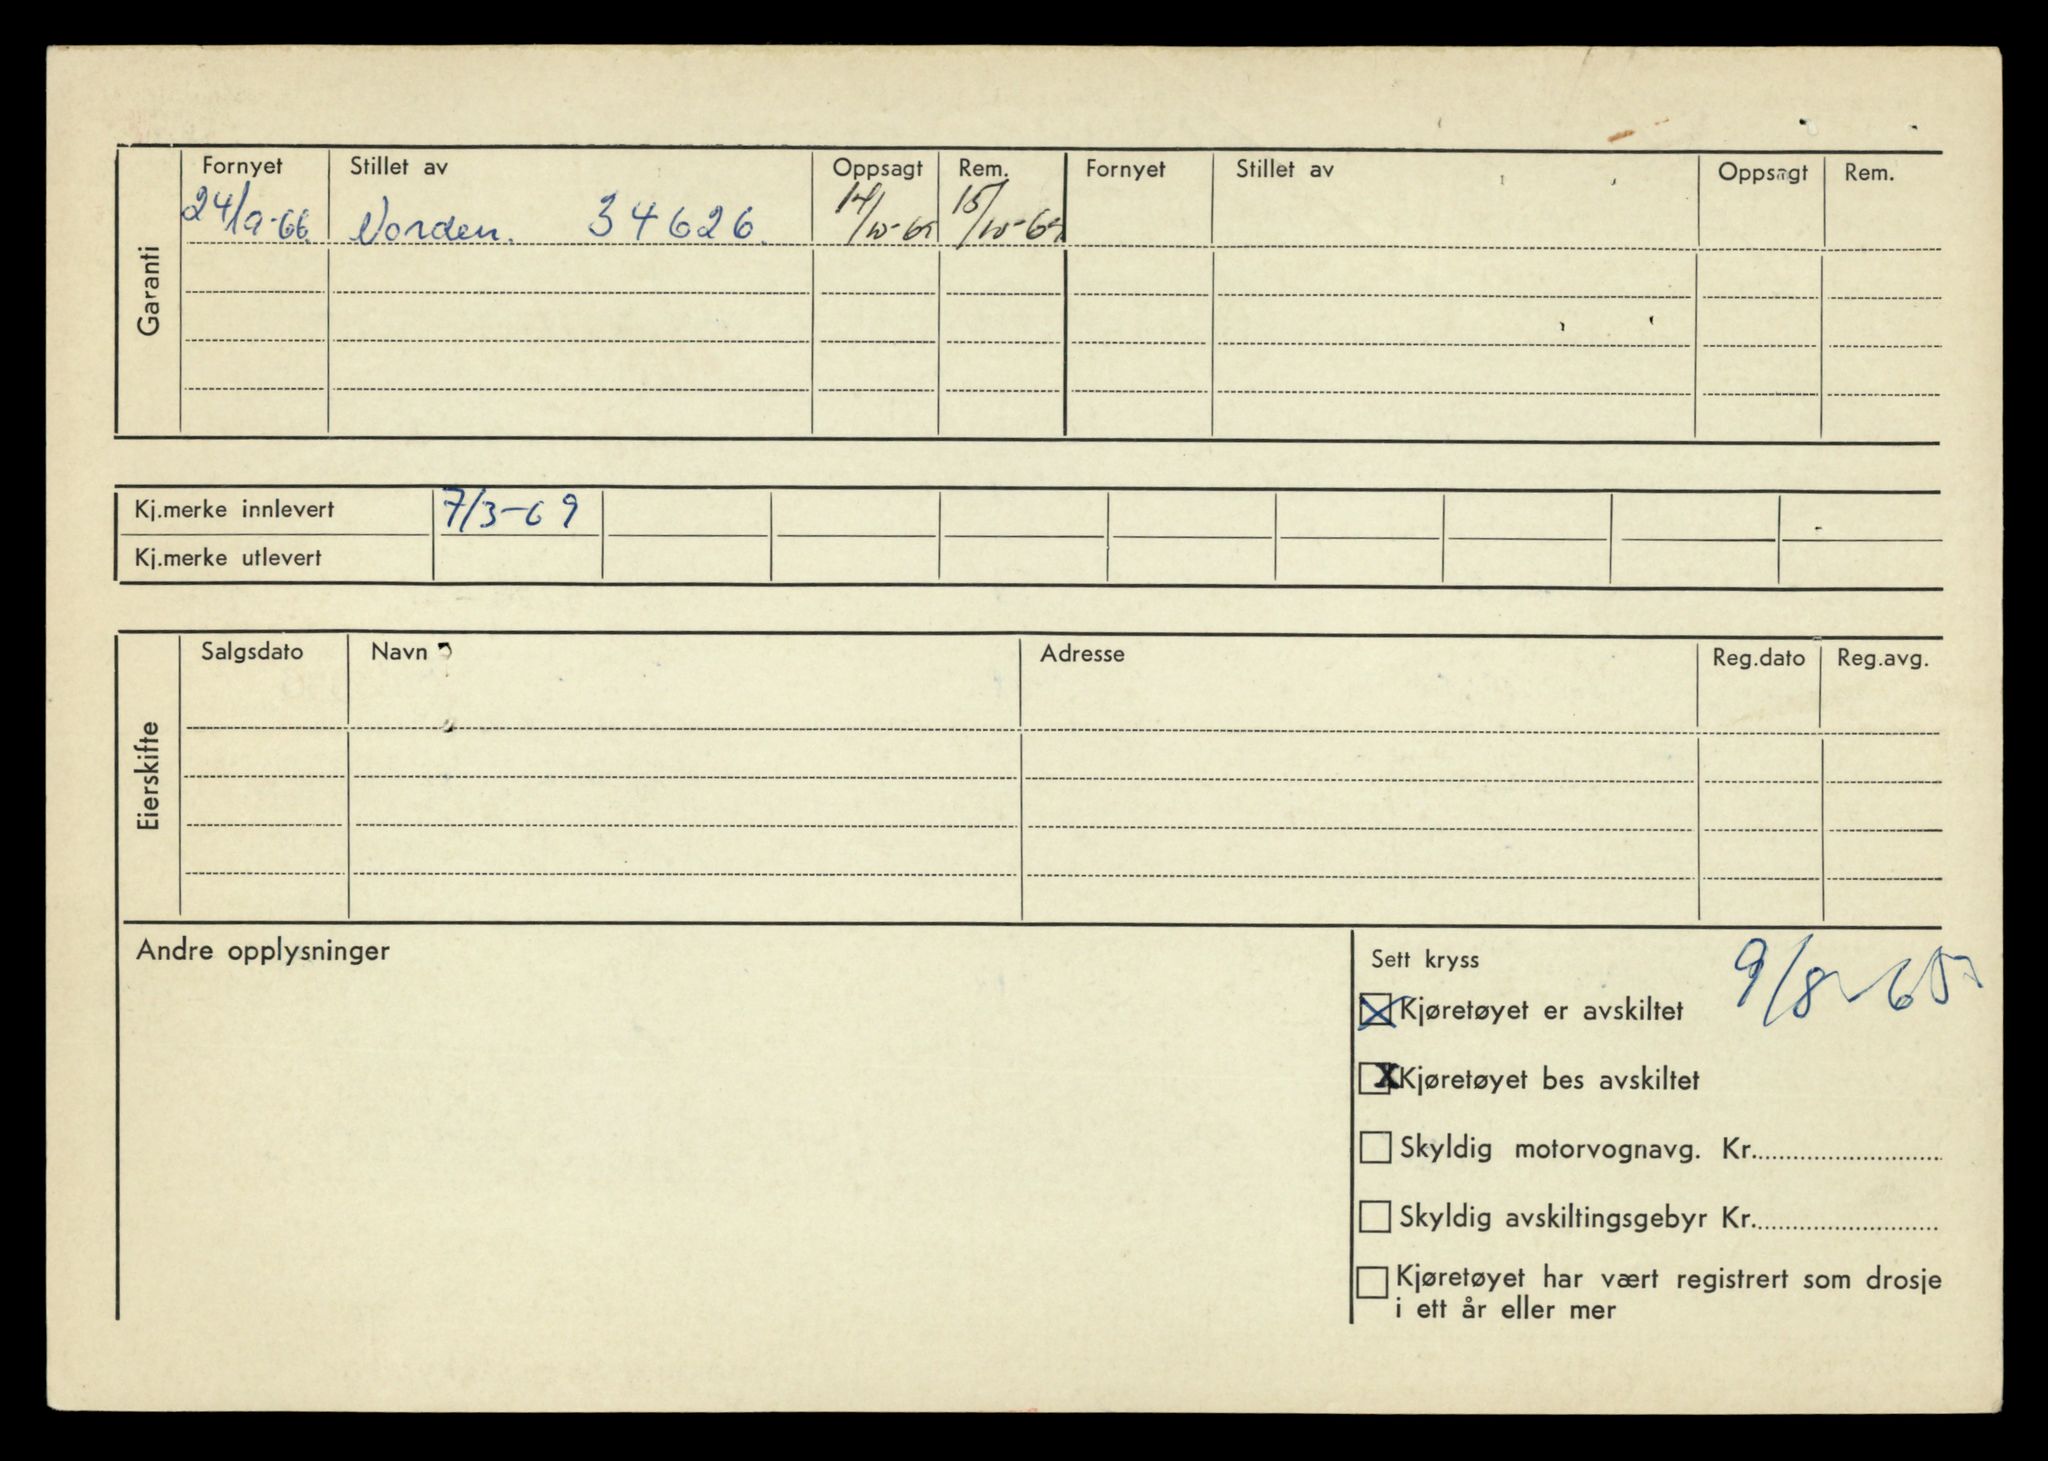 Garanti
Fornyet Stillet av Oppsagt Rem. Fornyet Stillet av Oppsagt Rem.
24/9-66. Norden. 34626.
Kj.merke innlevert 7/3-69
Kj.merke utlevert
Eierskifte
Salgsdato Navn Adresse Reg.dato Reg.avg.
Andre opplysninger
Sett kryss
X Kjøretøyet er avskiltet
X Kjøretøyet bes avskiltet
Skyldig motorvognavg. Kr.
Skyldig avskiltingsgebyr Kr.
Kjøretøyet har vært registrert som drosje
i ett år eller mer